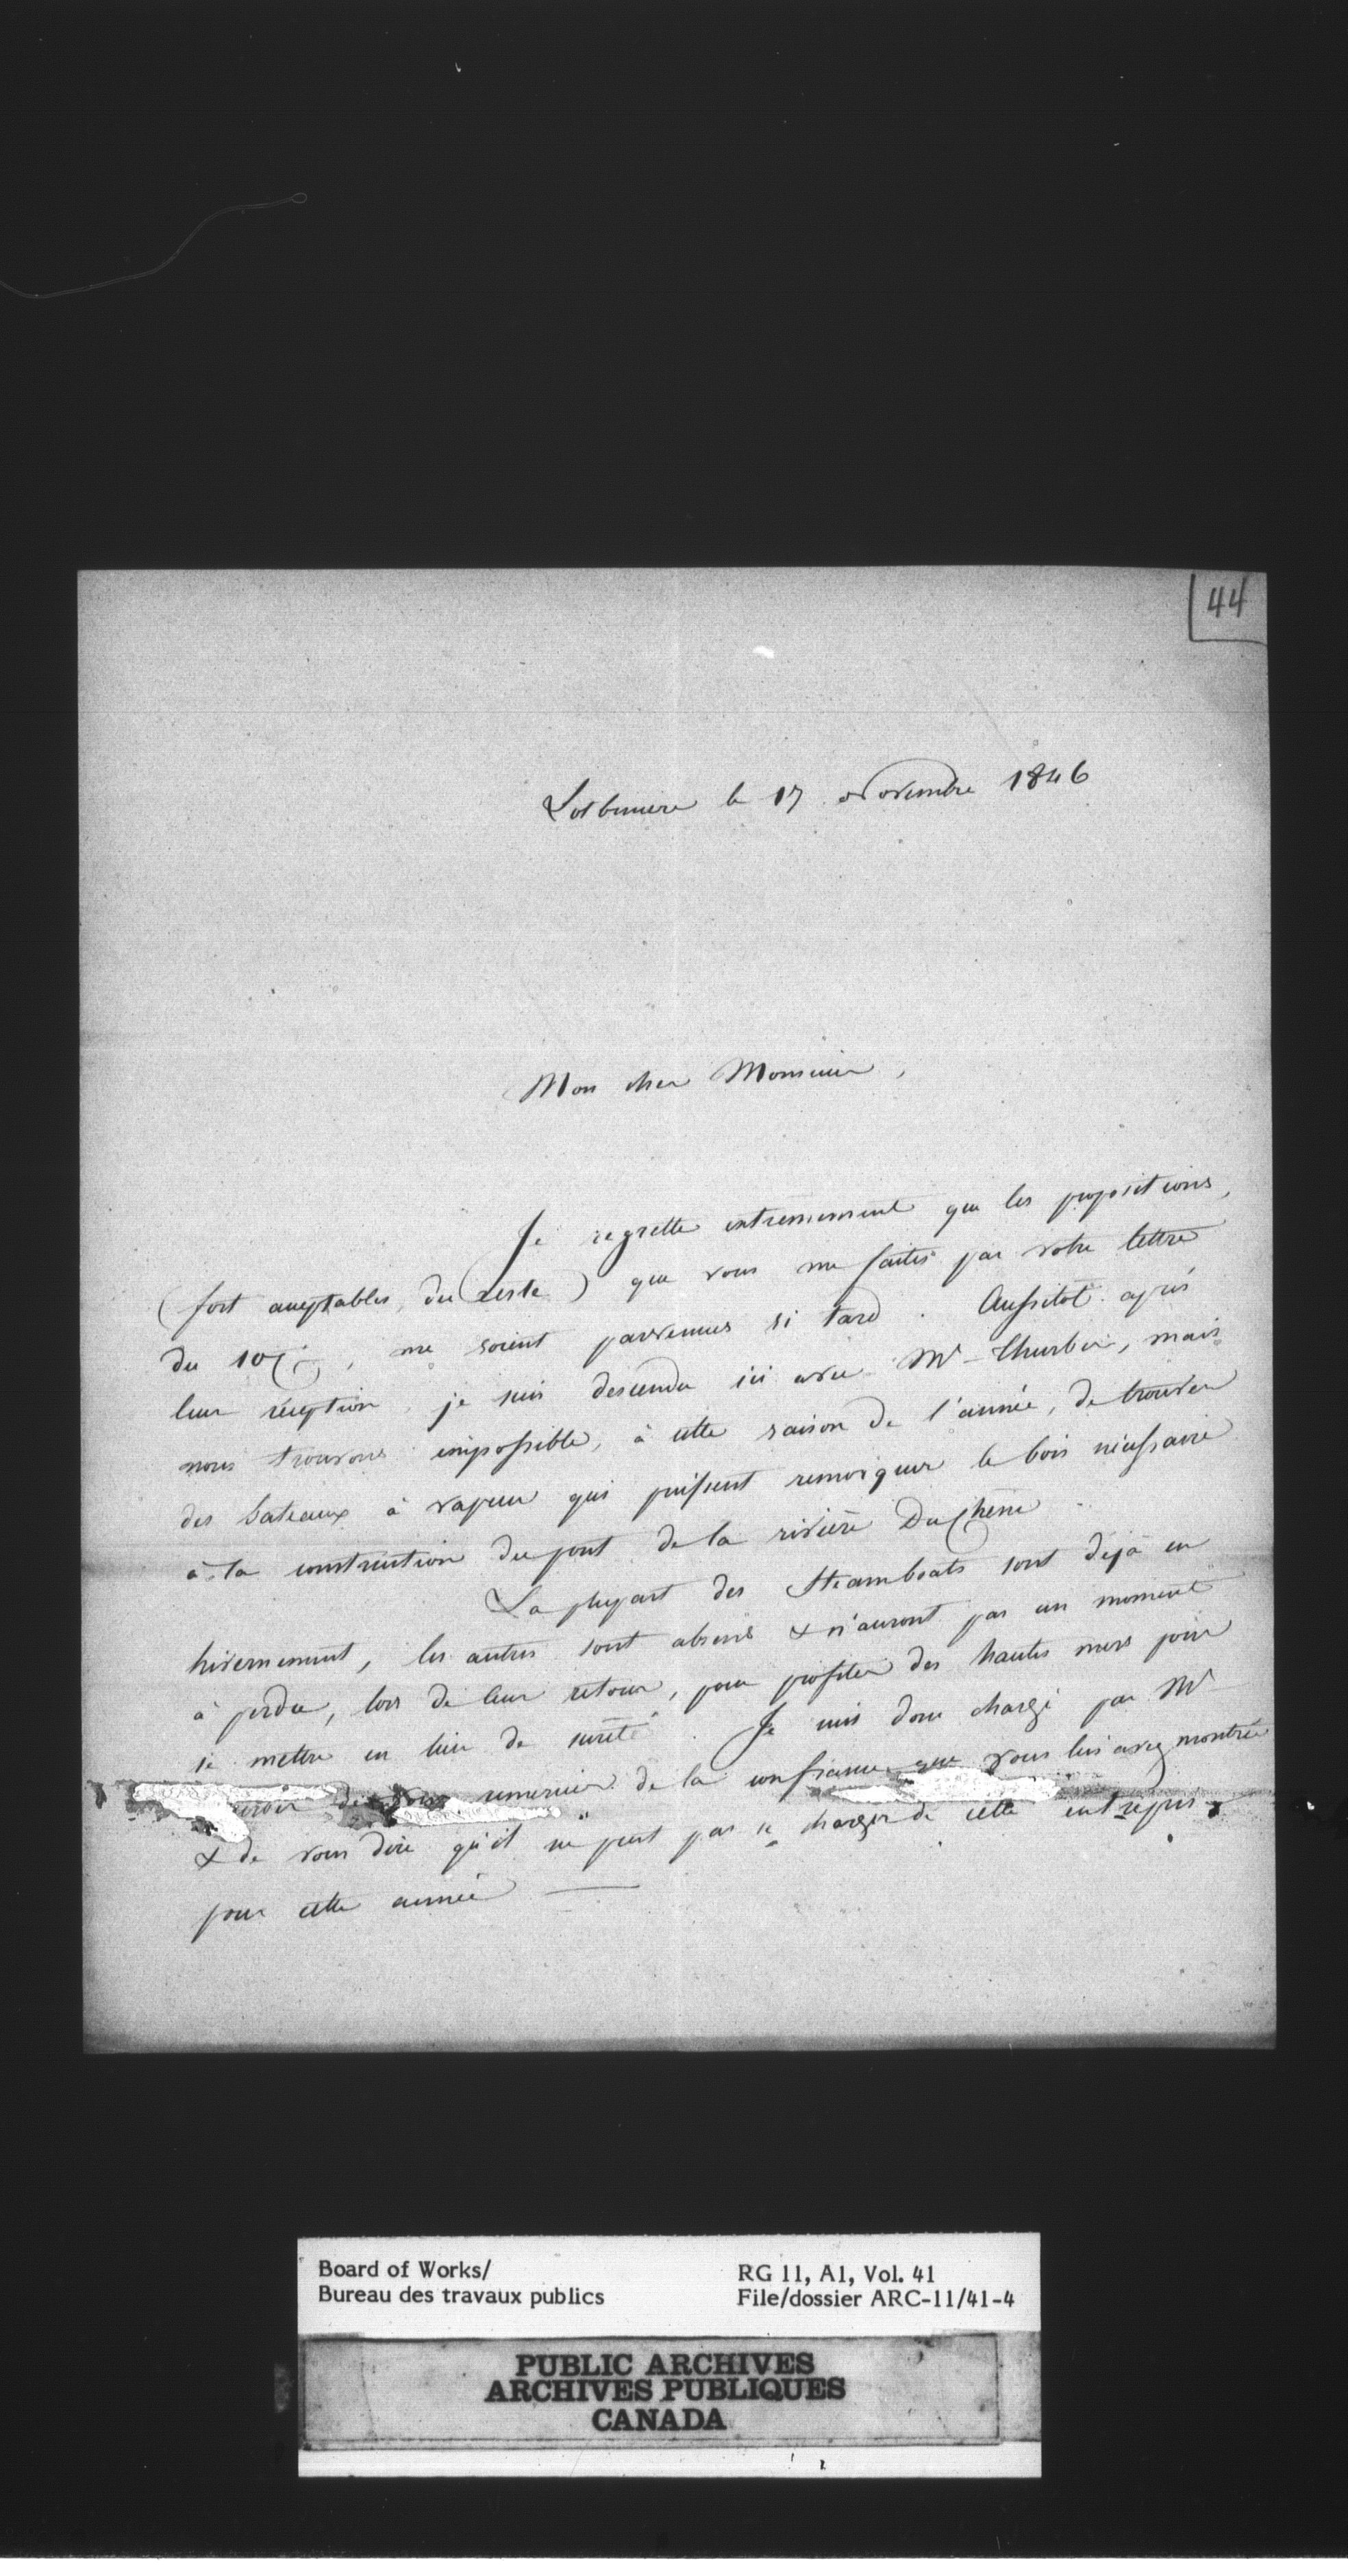 44
Lotbiniere le 17 Novembre 1846
Mon cher Monsieur,
Je regrette extremement que les propositions,
(fort acceptables, du reste) que vous me faites par votre lettre
du 10, me soient parvenues si tard. Aussitot après
leur réception, je suis descendu ici avec Mr Thurber, mais
nous trouvons impossible, à cette saison de l'année, de trouver
des bateaux à vapeur qui puissent remorquer le bois nécessaire
à la construction du pont de la rivière DuChêne
La plupart des Steamboats sont déjà en
hivernement, les autres sont absens & n'auront pas un moment
à perdre, lors de leur retour, pour profiter des hautes mers pour
se mettre en lieu de sureté. Je suis donc chargé par Mr
de vous remercier de la confiance que vous lui avez montrée
& de vous dire qu'il ne peut pas se charger de cette entreprise
pour cette année —
Board of Works/
Bureau des travaux publics
RG 11, A1, Vol. 41
File/dossier ARC-11/41-4
PUBLIC ARCHIVES
ARCHIVES PUBLIQUES
CANADA